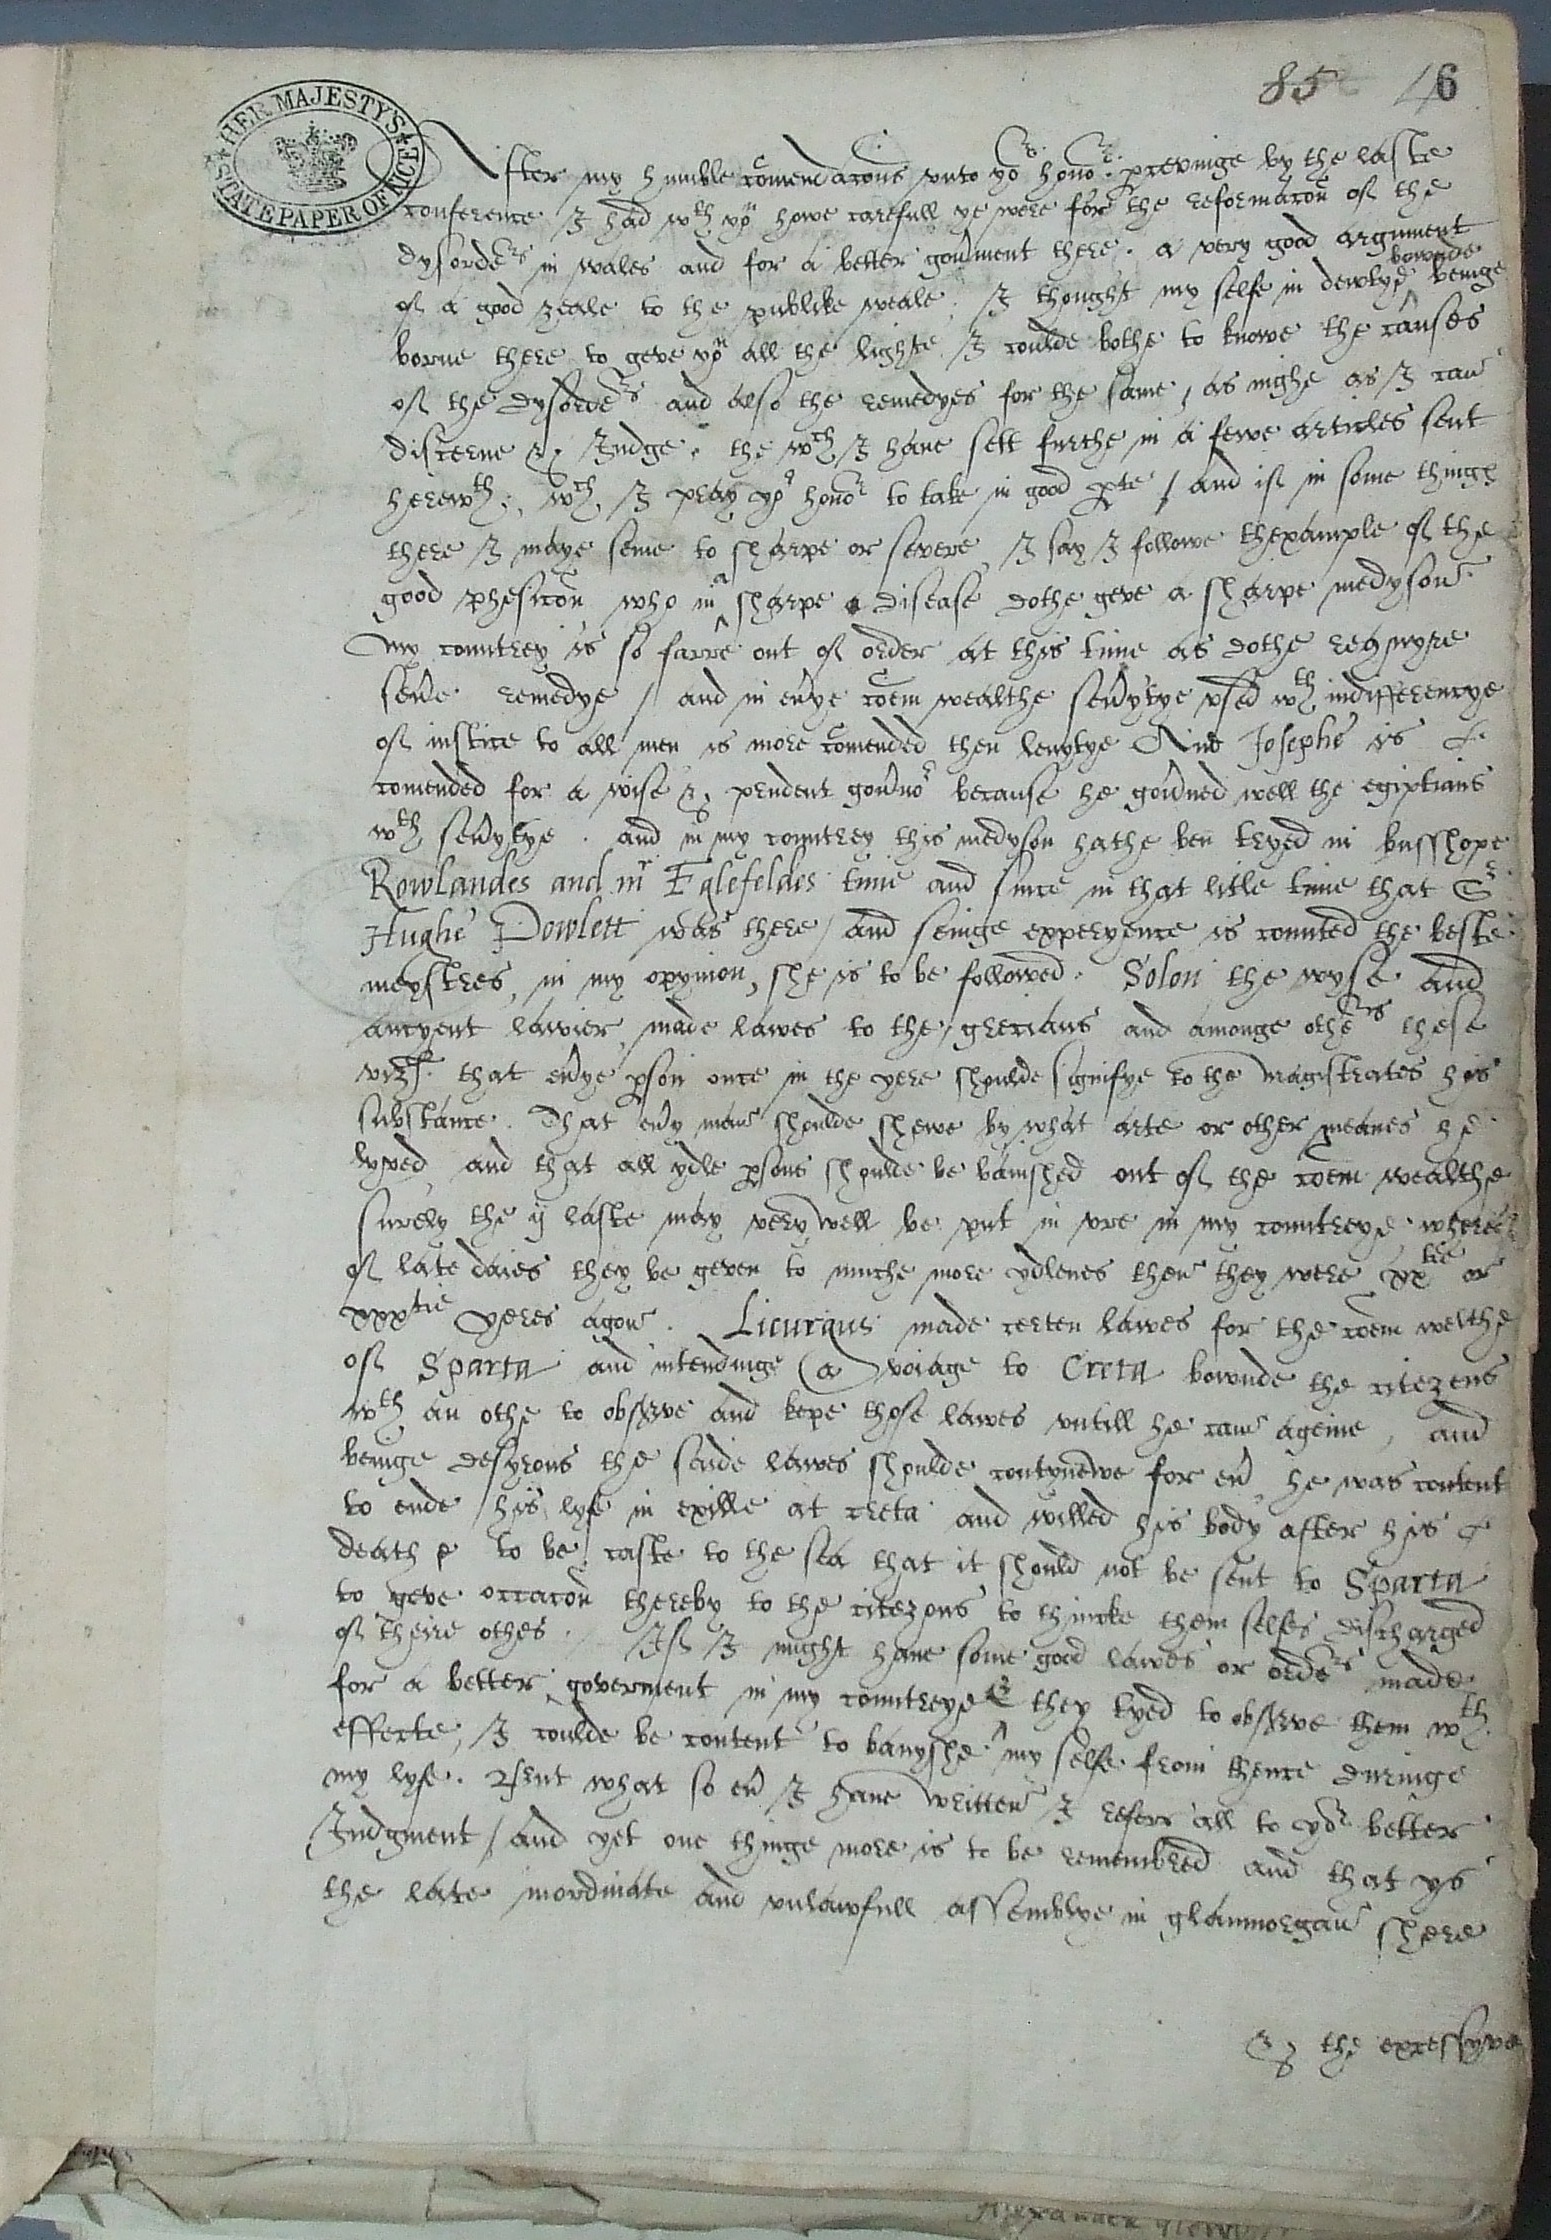 HER MAJESTY'S STATE PAPER OFFICE
85 46
After my humble comendacons vnto yor honor. perceivinge by the laste
conference I had wth you howe carefull ye were for the reformacon of the
dysorders in wales and for a better gou'ment there. a very good argument
of a good zeale to the publike weale. I thought my selfe in dewtye bownde beinge
borne there to geve you all the lighte I coulde bothe to knowe the causes
of the dysorders and also the remedyes for the same, as nighe as I can
discerne & Iudge. the wch I haue sett furthe in a fewe articles sent
herewth. wch I pray yor honor to take in good pte / and if in some things
there I maye seme to sharpe or severe, I say I followe thexample of the
good phesicon who in a sharpe disease dothe geve a sharpe medyson
My countrey is so farre out of order at this time as dothe reqwyre
seu'e remedye / and in eu'ye coem wealthe seu'ytye vsed wth indifferencye
of iustice to all men is more comended then lenytye And Josephe is
comended for a wise & prudent gou'nor because he gou'ned well the egiptians
wth seu'ytye. and in my countrey this medyson hathe ben tryed in busshope
Rowlandes and mr Eglefeldes time and since in that litle time that Sr
Hughe Powlett was there / and seinge experyence is counted the beste
meystres, in my opynion, she is to be followed. Solon the wyse and
auncyent lawier, made lawes to the grecians and amonge others these
vizt. that eu'ye pson once in the yere shoulde signifye to the magistrates his
substance. That eu'y man shoulde shewe by what arte or other meanes he
lyved, and that all ydle psons shoulde be banished out of the coem wealthe
surely the ij laste may very well be put in vre in my countreye where
of late daies they be geven to muche more ydlenes then they were xxtie or
xxxtie yeres agon. Licurgus made certen lawes for the coem welthe
of Sparta and intendinge a voiage to Creta bownde the citezens
wth an othe to observe and kepe those lawes vntill he cam ageine, and
beinge desyrous the saide lawes shoulde contynewe for eu' he was content
to ende his lyfe in exille at creta and willed his body after his
deathe to be caste to the sea that it should not be sent to Sparta
to geve occacon thereby to the citezens to thincke them selfes discharged
of theire othes. If I might haue some good lawes or orders made
for a better goverment in my countreye & they tyed to observe them wth
effecte, I coulde be content to banyshe my selfe from thence duringe
my lyfe. But what so eu' I haue written I referr all to yor better
Iudgment / and yet one thinge more is to be remembred and that ys
the late inordinate and vnlawfull assemblye in glanmorgan shere
& the excessyve